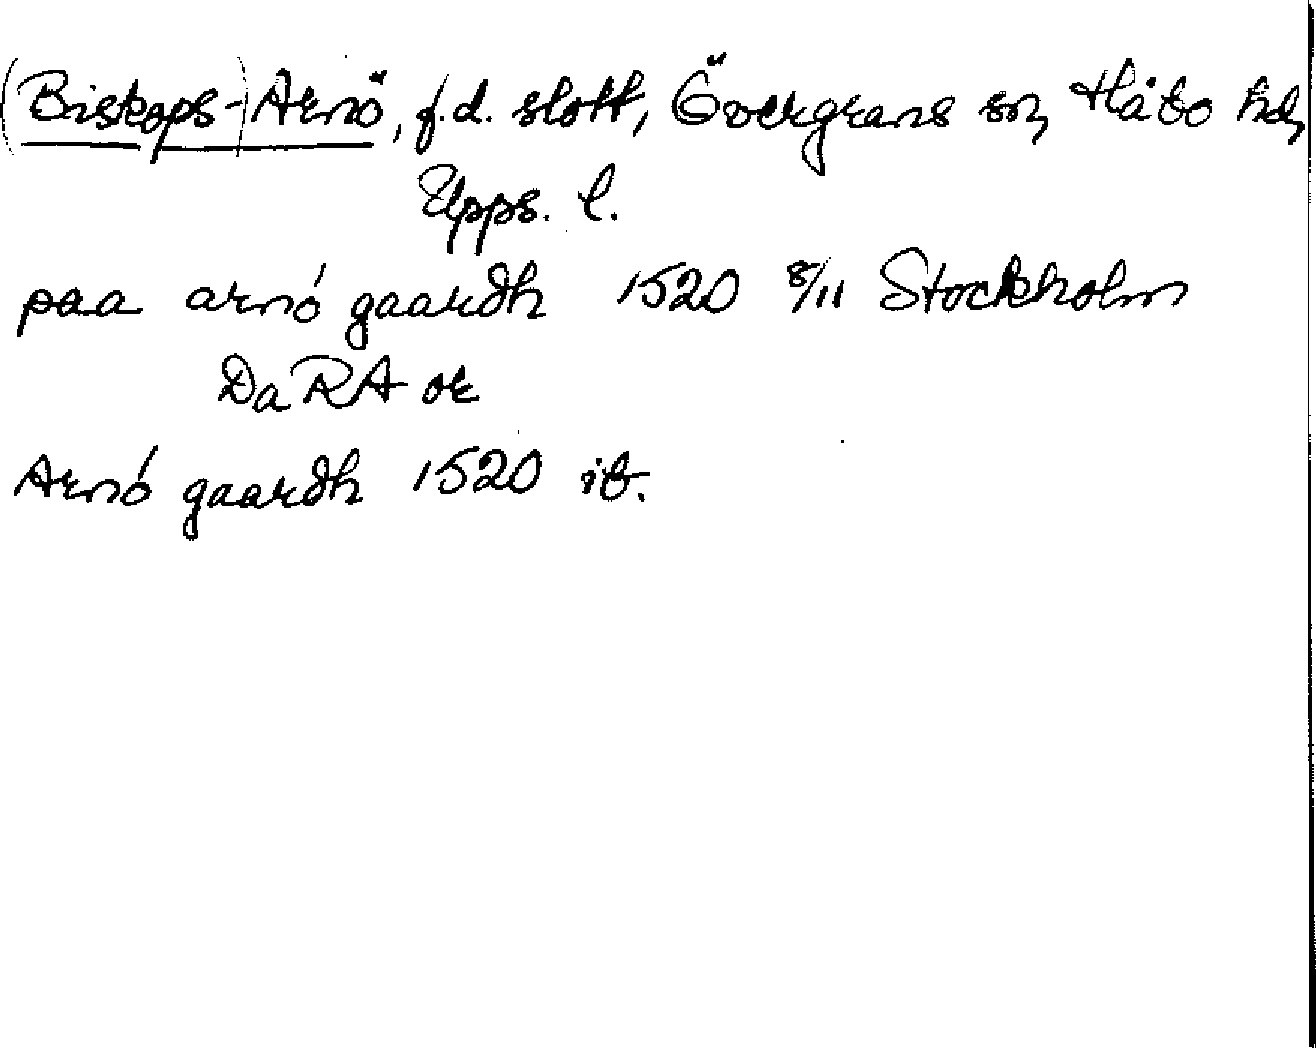 (Biskops-)Arnö, f.d. slott, Övergrans sn, Håbo hd,
Upps. l.
paa arnó gaardh 1520 8/11 Stockholm
DaRA or
Arnó gaardh 1520 ib.